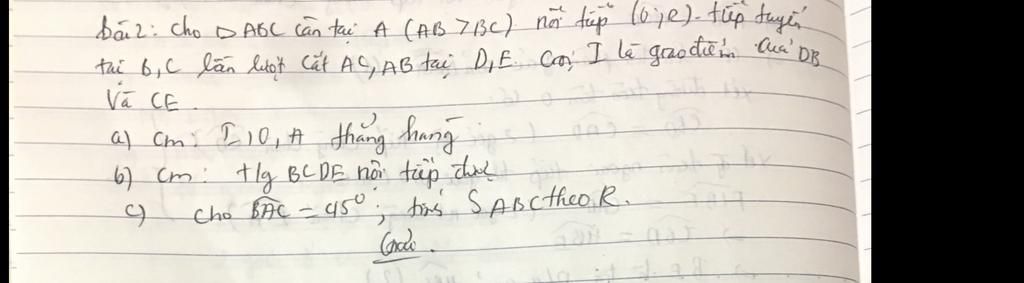 Bài 2: Cho △ ABC cân tại A (AB > BC) nội tiếp (O; R). tiếp tuyến
tại B, C lần lượt cắt AC, AB tại D, E. Gọi I là giao điểm của DB
Và CE.
a) cm: I, O, A thẳng hàng
b) cm: t/g BCDE nội tiếp được
c) cho BAC = 45°; tính SABC theo R.
Giải.